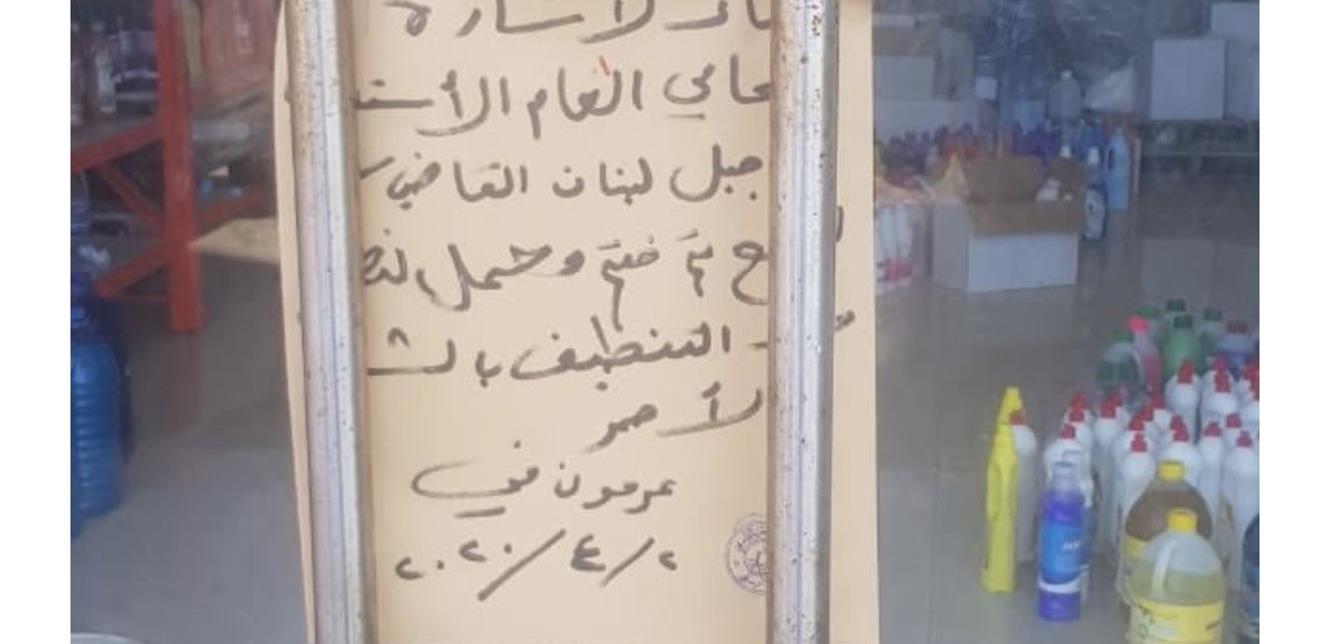 لاشارة
حامي العام الأستـ
جبل لبنان القاضي
ح تم ختم وحمل
التنظيف بالشـ
لأحمر
عرمون في
٢/٤/٢٠٢٠